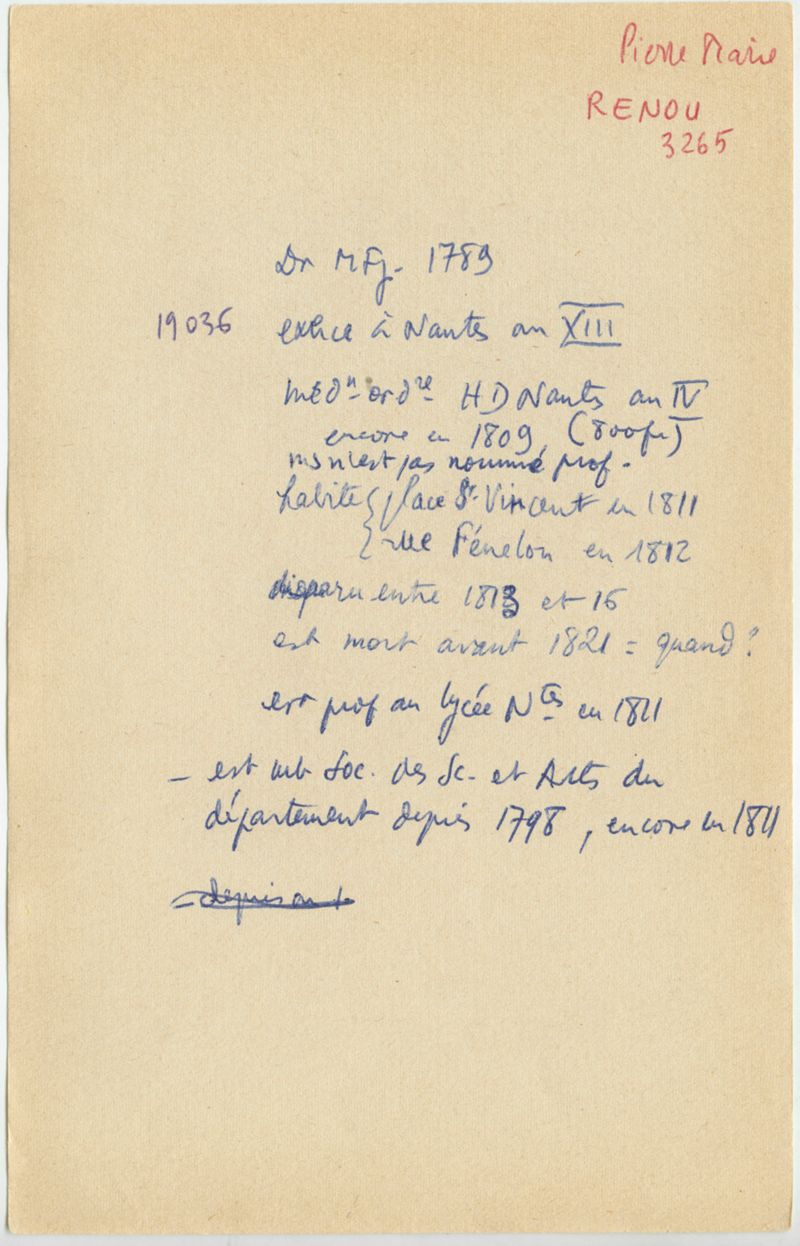 Pierre Marie
RENOU
3265
Dr MFj. 1789
19036 exerce à Nantes an XIII
médn ordre HD Nantes an IV
encore en 1809 (800fr)
ms n'est pas nommé prof.
habite { place St Vincent en 1811
{ rue Fénelon en 1812
disparu entre 1813 et 15
est mort avant 1821 = quand?
est prof au lycée Ntes en 1811
- est mb Soc. des Sc. et Arts du
département depuis 1798, encore en 1811
- depuis an